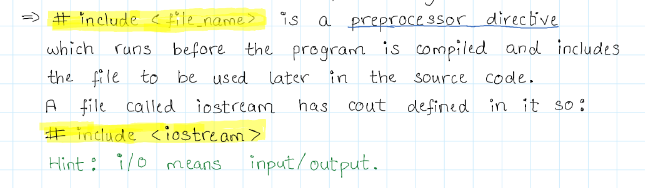 ⇒ # include <file_name> is a preprocessor directive
which runs before the program is compiled and includes
the file to be used later in the source code.
A file called iostream has cout defined in it so:
# include <iostream>
Hint: i/o means input/output.